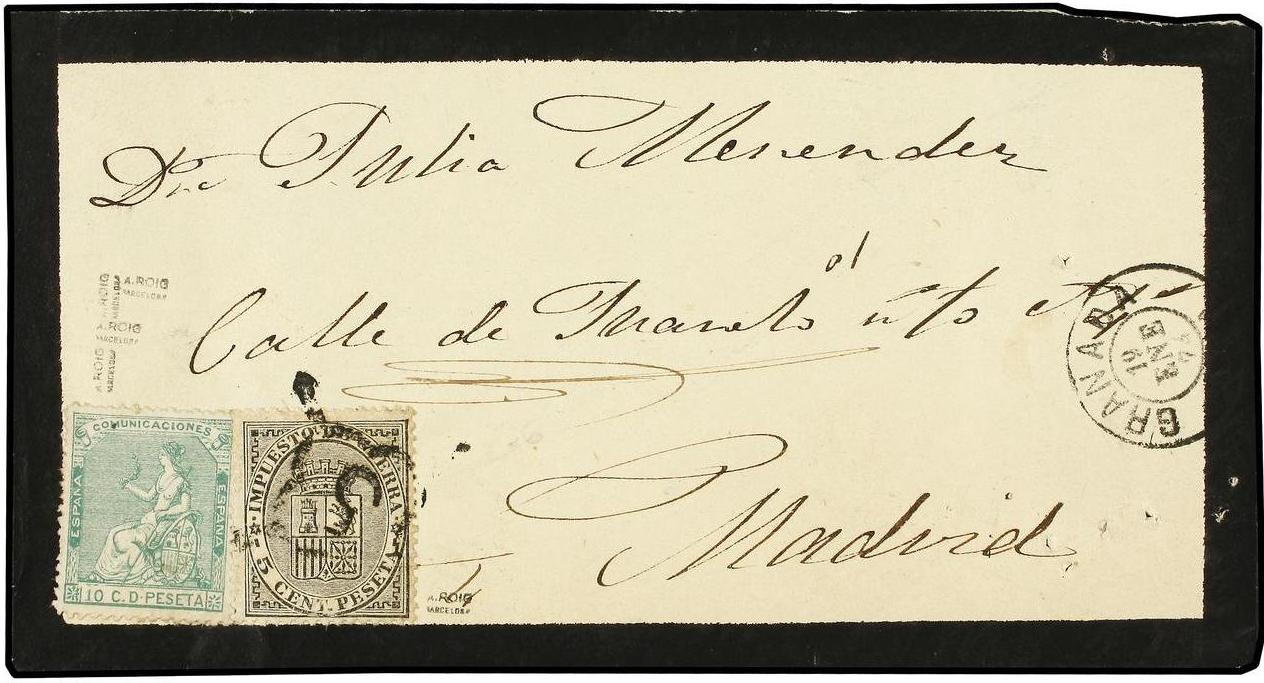 Dña Julia Menendez
Calle de
Madrid
A. ROIG
BARCELONA
A. ROIG
BARCELONA
A. ROIG
BARCELONA
A. ROIG
BARCELONA
COMUNICACIONES
ESPAÑA
ESPAÑA
10 C. D PESETA
IMPUESTO DE GUERRA
5 CENT. PESETA
GRANADA
19
ENE
74
A. ROIG
BARCELONA